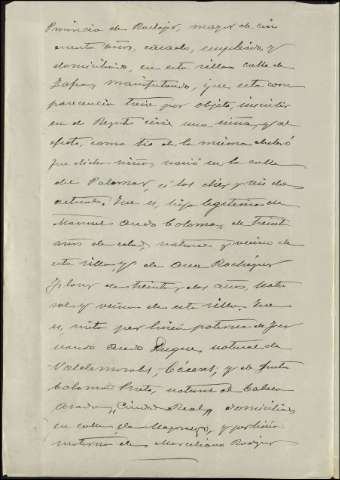 Provincia de Badajoz, mayor de cin
cuenta años, casado, empleado y
domiciliado en esta villa calle de
Zafra, manifestando, que esta com
parecencia tiene por objeto, inscribir
en el Registro civil una niña, y al
efecto, como tio de la misma declaró
Que dicha niña nació en la calle
del Palomar, á las diez y seis de
actual. Que es, hija legitima de
Manuel Ovedo Coloma, de treinta
años de edad, natural y vecino de
esta villa y de Ana Rodriguez
de treinta y dos años, natu
ral y vecina de esta villa. Que
es, nieta por linea paterna de Fer
nando Ovedo Duque, natural de
Valdemorales, Cáceres, y de
Coloma Prieto, natural de Cabeza
Arados, "Ciudad Real", domiciliados
en calle de y por linea
materna de Marceliano Rodrigue